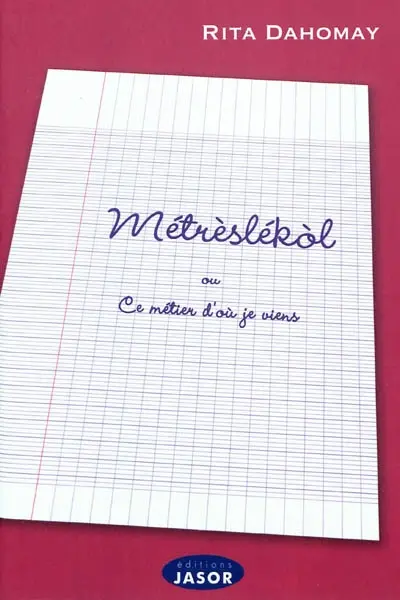 RITA DAHOMAY
Métrèslékòl
ou
Ce métier d'où je viens
éditions
JASOR